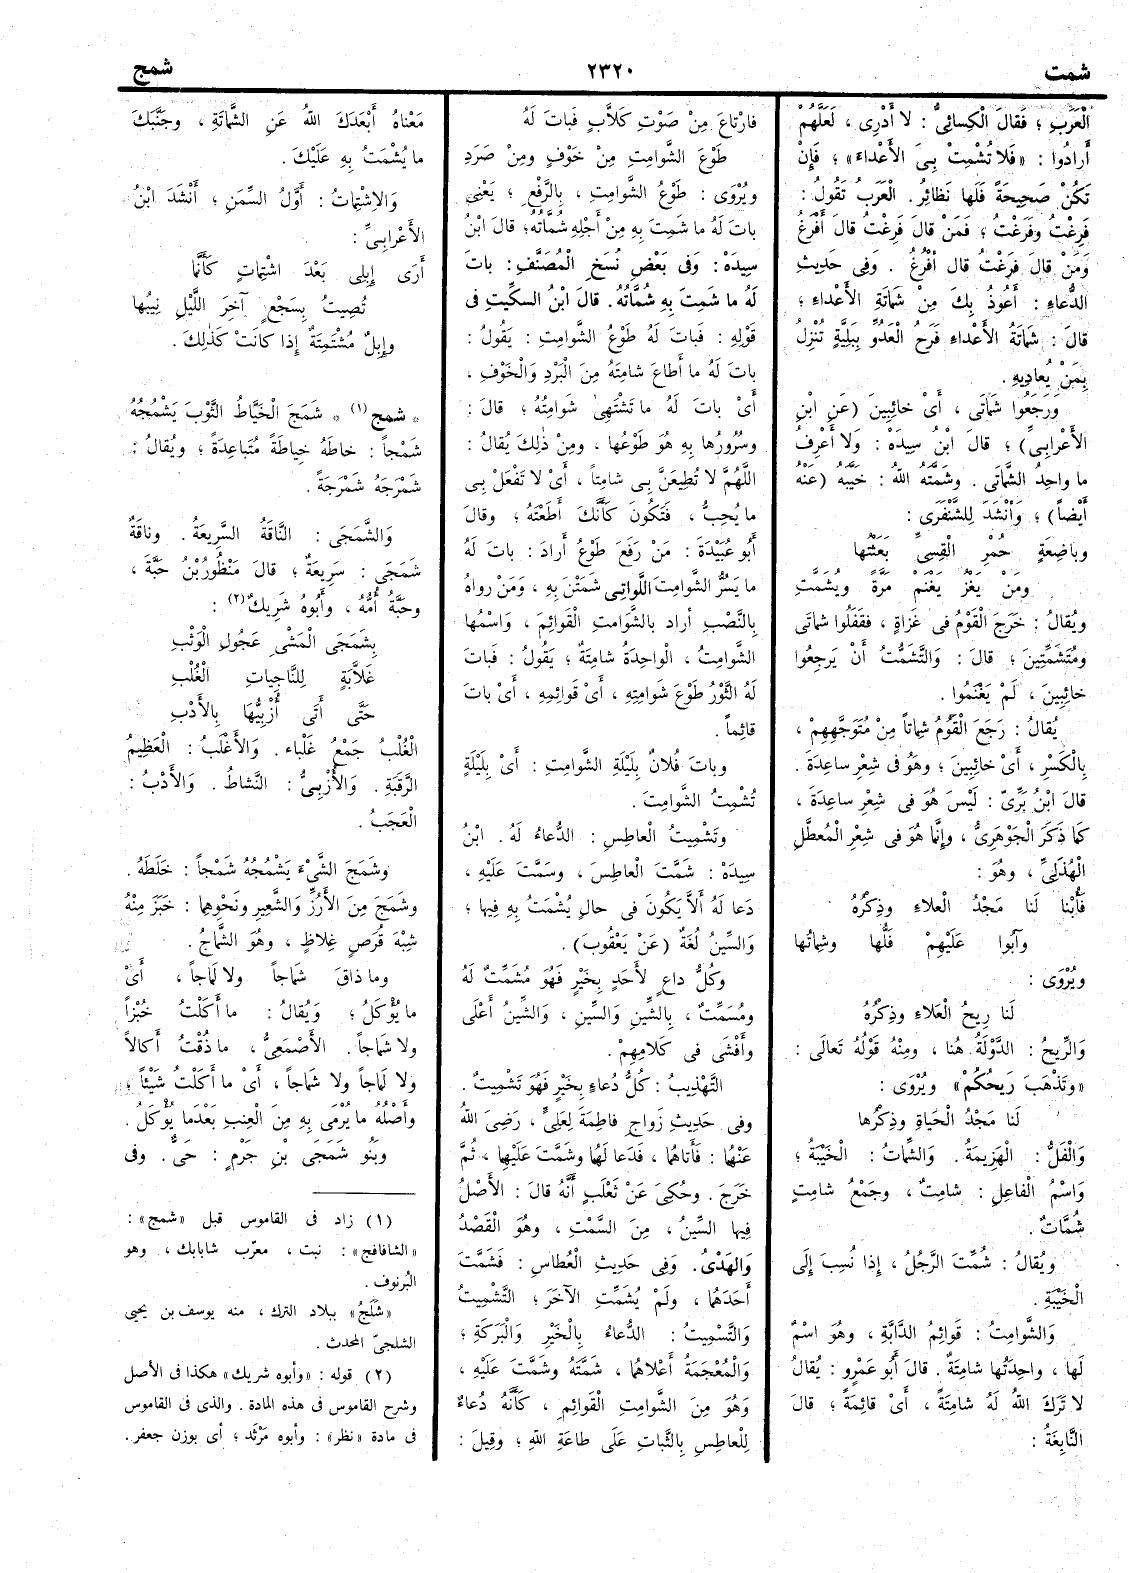 شمت
٢٣٢٠
شمج
الْعَرَبِ ؛ فَقالَ الْكِسائِىُّ : لا أَدْرِى ، لَعَلَّهُمْ
أَرادُوا : «فَلا تُشْمِتْ بِىَ الأَعْداءَ» ؛ فَإِنْ
تَكُنْ صَحِيحَةً فَلَها نَظائِرُ . الْعَرَبُ تَقُولُ :
فَرِغْتُ وفَرَغْتُ ؛ فَمَنْ قالَ فَرِغْتُ قالَ أَفْرَغُ
وَمَنْ قالَ فَرَغْتُ قال أَفْرُغُ . وَفِى حَدِيثِ
الدُّعاءِ : أَعُوذُ بِكَ مِنْ شَماتَةِ الأَعْداءِ ؛
قالَ : شَماتَةُ الأَعْداءِ فَرَحُ الْعَدُوِّ بِبَلِيَّةٍ تَنْزِلُ
بِمَنْ يُعادِيهِ .
وَرَجَعُوا شَماتَى ، أَىْ خائِبِينَ (عَنِ ابْنِ
الأَعْرابِىِّ) ؛ قالَ ابْنُ سِيدَهْ : وَلا أَعْرِفُ
ما واحِدُ الشَّماتَى . وشَمَّتَهُ اللهُ : خَيَّبَهُ (عَنْهُ
أَيْضاً) ؛ وَأَنْشَدَ لِلشَّنْفَرَى :
وباضِعَةٍ حُمْرِ الْقِسِىِّ بَعَثْتُها
ومَنْ يَغْزُ يَغْنَمْ مَرَّةً ويُشَمَّتِ
ويُقالُ : خَرَجَ الْقَوْمُ فِى غَزاةٍ ، فَقَفَلُوا شَماتَى
ومُتَشَمِّتِينَ ؛ قالَ : وَالتَّشَمُّتُ أَنْ يَرْجِعُوا
خائِبِينَ ، لَمْ يَغْنَمُوا .
يُقالُ : رَجَعَ الْقَوْمُ شِماتاً مِنْ مُتَوَجَّهِهِمْ ،
بِالْكَسْرِ ، أَىْ خائِبِينَ ؛ وهُوَ فِى شِعْرِ ساعِدَةَ .
قالَ ابْنُ بَرِّىّ : لَيْسَ هُوَ فِى شِعْرِ ساعِدَةَ ،
كَما ذَكَرَ الْجَوْهَرِىُّ ، وإِنَّما هُوَ فِى شِعْرِ الْمُعَطَّلِ
الْهُذَلِىِّ ، وهُوَ :
فَأُبْنا لَنا مَجْدُ الْعَلاءِ وذِكْرُهُ
وآبُوا عَلَيْهِمْ فَلُّها وشِماتُها
ويُرْوَى :
لَنا رِيحُ الْعَلاءِ وذِكْرُهُ
وَالرِّيحُ : الدَّوْلَةُ هُنا ، ومِنْهُ قَوْلُهُ تَعالَى :
«وَتَذْهَبَ رِيحُكُمْ» ويُرْوَى :
لَنا مَجْدُ الْحَياةِ وذِكْرُها
وَالْفَلُّ : الْهَزِيمَةُ . وَالشِّماتُ : الْخَيْبَةُ ؛
وَاسْمُ الْفاعِلِ : شامِتٌ ، وجَمْعُ شامِتٍ
شُمَّاتٌ .
ويُقالُ : شُمِّتَ الرَّجُلُ ، إِذا نُسِبَ إِلَى
الْخَيْبَةِ .
وَالشَّوامِتُ : قَوائِمُ الدَّابَّةِ ، وهُوَ اسْمٌ
لَها ، واحِدَتُها شامِتَةٌ . قالَ أَبُو عَمْرٍو : يُقالُ
لا تَرَكَ اللهُ لَهُ شامِتَةً ، أَىْ قائِمَةً ؛ قالَ
النَّابِغَةُ :
فارْتاعَ مِنْ صَوْتِ كَلَّابٍ فَباتَ لَهُ
طَوْعَ الشَّوامِتِ مِنْ خَوْفٍ ومِنْ صَرَدِ
ويُرْوَى : طَوْعُ الشَّوامِتِ ، بِالرَّفْعِ ؛ يَعْنِى
باتَ لَهُ ما شَمِتَ بِهِ مِنْ أَجْلِهِ شُمَّاتُهُ ؛ قالَ ابْنُ
سِيدَهْ : وَفِى بَعْضِ نُسَخِ الْمُصَنَّفِ : باتَ
لَهُ ما شَمِتَ بِهِ شُمَّاتُهُ . قالَ ابْنُ السِّكِّيتِ فِى
قَوْلِهِ : فَباتَ لَهُ طَوْعُ الشَّوامِتِ : يَقُولُ :
باتَ لَهُ ما أَطاعَ شامِتَهُ مِنَ الْبَرْدِ وَالْخَوْفِ ،
أَىْ باتَ لَهُ ما تَشْتَهِى شَوامِتُهُ ؛ قالَ :
وسُرُورُها بِهِ هُوَ طَوْعُها ، ومِنْ ذٰلِكَ يُقالُ :
اللَّهُمَّ لا تُطِيعَنَّ بِى شامِتاً ، أَىْ لا تَفْعَلْ بِى
ما يُحِبُّ ، فَتَكُونَ كَأَنَّكَ أَطَعْتَهُ ؛ وقالَ
أَبُو عُبَيْدَةَ : مَنْ رَفَعَ طَوْعُ أَرادَ : باتَ لَهُ
ما يَسُرُّ الشَّوامِتَ اللَّواتِى شَمَتْنَ بِهِ ، وَمَنْ رَواهُ
بِالنَّصْبِ أَرادَ بِالشَّوامِتِ الْقَوائِمَ ، وَاسْمُها
الشَّوامِتُ ، الْواحِدَةُ شامِتَةٌ ؛ يَقُولُ : فَباتَ
لَهُ الثَّوْرُ طَوْعَ شَوامِتِهِ ، أَىْ قَوائِمِهِ ، أَىْ باتَ
قائِماً .
وباتَ فُلانٌ بِلَيْلَةِ الشَّوامِتِ : أَىْ بِلَيْلَةٍ
تُشْمِتُ الشَّوامِتَ .
وتَشْمِيتُ الْعاطِسِ : الدُّعاءُ لَهُ . ابْنُ
سِيدَهْ : شَمَّتَ الْعاطِسَ ، وسَمَّتَ عَلَيْهِ ،
دَعا لَهُ أَلاَّ يَكُونَ فِى حالٍ يُشْمَتُ بِهِ فِيها ؛
وَالسِّينُ لُغَةٌ (عَنْ يَعْقُوبَ) .
وكُلُّ داعٍ لأَحَدٍ بِخَيْرٍ فَهُوَ مُشَمِّتٌ لَهُ
ومُسَمِّتٌ ، بِالشِّينِ وَالسِّينِ ، وَالشِّينُ أَعْلَى
وأَفْشَى فِى كَلامِهِمْ .
التَّهْذِيبُ : كُلُّ دُعاءٍ بِخَيْرٍ فَهُوَ تَشْمِيتٌ .
وفِى حَدِيثِ زَواجِ فاطِمَةَ لِعَلِىٍّ ، رَضِىَ اللهُ
عَنْهُما : فَأَتاهُما ، فَدَعا لَهُما وشَمَّتَ عَلَيْهِما ، ثُمَّ
خَرَجَ . وحُكِىَ عَنْ ثَعْلَبٍ أَنَّهُ قالَ : الأَصْلُ
فِيها السِّينُ ، مِنَ السَّمْتِ ، وهُوَ الْقَصْدُ
وَالْهَدْىُ . وَفِى حَدِيثِ الْعُطاسِ : فَشَمَّتَ
أَحَدَهُما ، ولَمْ يُشَمِّتِ الآخَرَ ؛ التَّشْمِيتُ
وَالتَّسْمِيتُ : الدُّعاءُ بِالْخَيْرِ وَالْبَرَكَةِ ؛
وَالْمُعْجَمَةُ أَعْلاهُما ، شَمَّتَهُ وشَمَّتَ عَلَيْهِ ،
وَهُوَ مِنَ الشَّوامِتِ الْقَوائِمِ ، كَأَنَّهُ دُعاءٌ
لِلْعاطِسِ بِالثَّباتِ عَلَى طاعَةِ اللهِ ؛ وَقِيلَ :
مَعْناهُ أَبْعَدَكَ اللهُ عَنِ الشَّماتَةِ ، وجَنَّبَكَ
ما يُشْمَتُ بِهِ عَلَيْكَ .
وَالاِشْتِماتُ : أَوَّلُ السِّمَنِ ؛ أَنْشَدَ ابْنُ
الأَعْرابِىِّ :
أَرَى إِبِلِى بَعْدَ اشْتِماتٍ كَأَنَّما
تُصِيتُ بِسَجْعٍ آخِرَ اللَّيْلِ نِيبُها
وإِبِلٌ مُشْتَمِتَةٌ إِذا كانَتْ كَذٰلِكَ .
* شمج (١) * شَمَجَ الْخَيَّاطُ الثَّوْبَ يَشْمُجُهُ
شَمْجاً : خاطَهُ خِياطَةً مُتَباعِدَةً ؛ ويُقالُ :
شَمْرَجَهُ شَمْرَجَةً .
وَالشَّمَجَى : النَّاقَةُ السَّرِيعَةُ . وناقَةٌ
شَمَجَى : سَرِيعَةٌ ؛ قالَ مَنْظُورُ بْنُ حَبَّةَ ،
وحَبَّةُ أُمُّهُ ، وأَبُوهُ شَرِيكٌ (٢) :
بِشَمَجَى الْمَشْىِ عَجُولِ الْوَثْبِ
غَلَّابَةٍ لِلنَّاجِياتِ الْغُلْبِ
حَتَّى أَتَى أُزْبِيُّها بِالأَدْبِ
الْغُلْبُ جَمْعُ غَلْباءَ . وَالأَغْلَبُ : الْعَظِيمُ
الرَّقَبَةِ . وَالأُزْبِىُّ : النَّشاطُ . وَالأَدْبُ :
الْعَجَبُ .
وشَمَجَ الشَّىْءَ يَشْمُجُهُ شَمْجاً : خَلَطَهُ .
وشَمَجَ مِنَ الأَرُزِّ وَالشَّعِيرِ ونَحْوِهِما : خَبَزَ مِنْهُ
شِبْهَ قُرَصٍ غِلاظٍ ، وهُوَ الشَّماجُ .
وما ذاقَ شَماجاً ولا لَماجاً ، أَىْ
ما يُؤْكَلُ ؛ وَيُقالُ : ما أَكَلْتُ خُبْزاً
ولا شَماجاً . الأَصْمَعِىُّ ، ما ذُقْتُ أَكالاً
ولا لَماجاً ولا شَماجاً ، أَىْ ما أَكَلْتُ شَيْئاً ؛
وأَصْلُهُ ما يُرْمَى بِهِ مِنَ الْعِنَبِ بَعْدَما يُؤْكَلُ .
وبَنُو شَمَجَى بْنِ جَرْمٍ : حَىٌّ . وفِى
(١) زاد فى القاموس قبل «شمج» :
«الشافافج» : نبت ، معرّب شابابك ، وهو
البُرنوف .
«شَلَجُ» ببلاد الترك ، منه يوسف بن يحيى
الشلجىّ المحدث .
(٢) قوله : «وأبوه شريك» هكذا فى الأصل
وشرح القاموس فى هذه المادة . والذى فى القاموس
فى مادة «نظر» : وأبوه مَرْثَد ؛ أى بوزن جعفر .